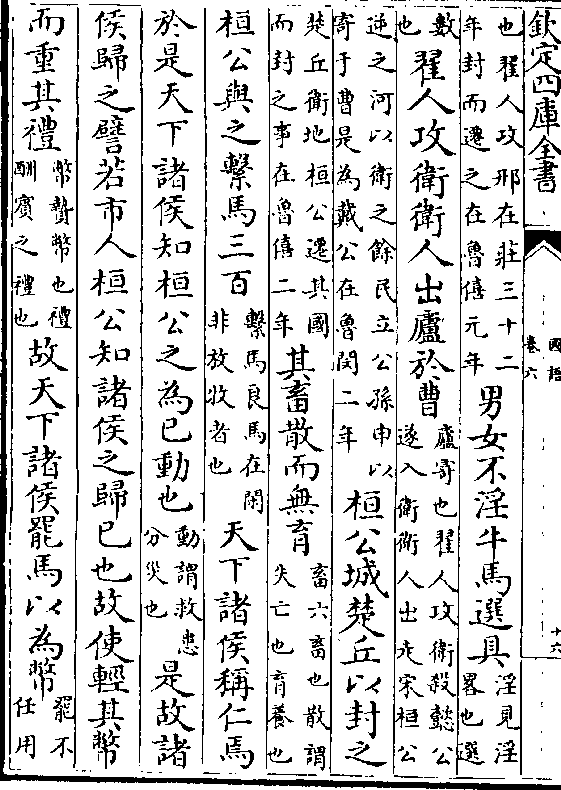 欽定四庫全書
國語
卷六
十六
也翟人攻邢在莊三十二
年封而遷之在魯僖元年
男女不淫牛馬選具
淫見淫
畧也選
數
也
翟人攻衛衛人出廬於曹
廬寄也翟人攻衛殺懿公
遂入衛衛人出走宋桓公
逆之河以衛之餘民立公孫申以
寄于曹是為戴公在魯閔二年
桓公城楚丘以封之
楚丘衛地桓公遷其國
而封之事在魯僖二年
其畜散而無育
畜六畜也散謂
失亡也育養也
桓公與之繫馬三百
繫馬良馬在閑
非放牧者也
天下諸侯稱仁焉
於是天下諸侯知桓公之為已動也
動謂救患
分災也
是故諸
侯歸之譬若市人桓公知諸侯之歸已也故使輕其幣
而重其禮
幣贄幣也禮
酬賓之禮也
故天下諸侯罷馬以為幣
罷不
任用